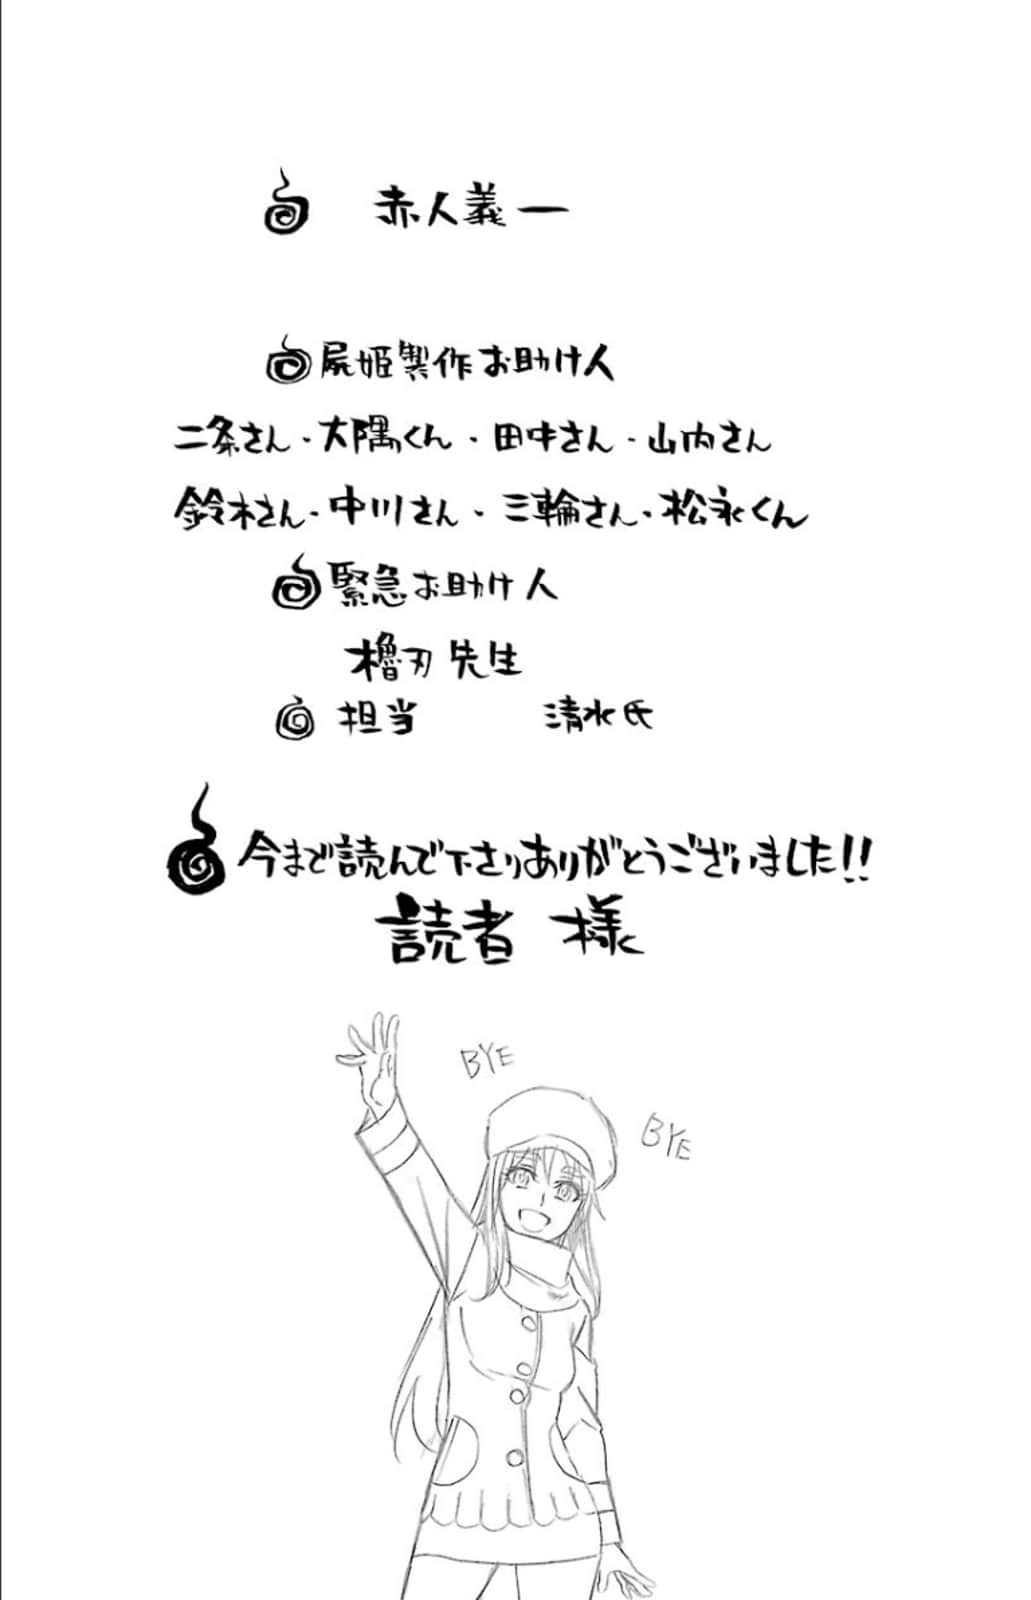 赤人義一
屍姫製作お助け人
二条さん・大隅くん・田中さん・山内さん
鈴木さん・中川さん・三輪さん・松永くん
緊急お助け人
櫓刃先生
担当 清水氏
今まで読んで下さりありがとうございました!!
読者 様
BYE
BYE